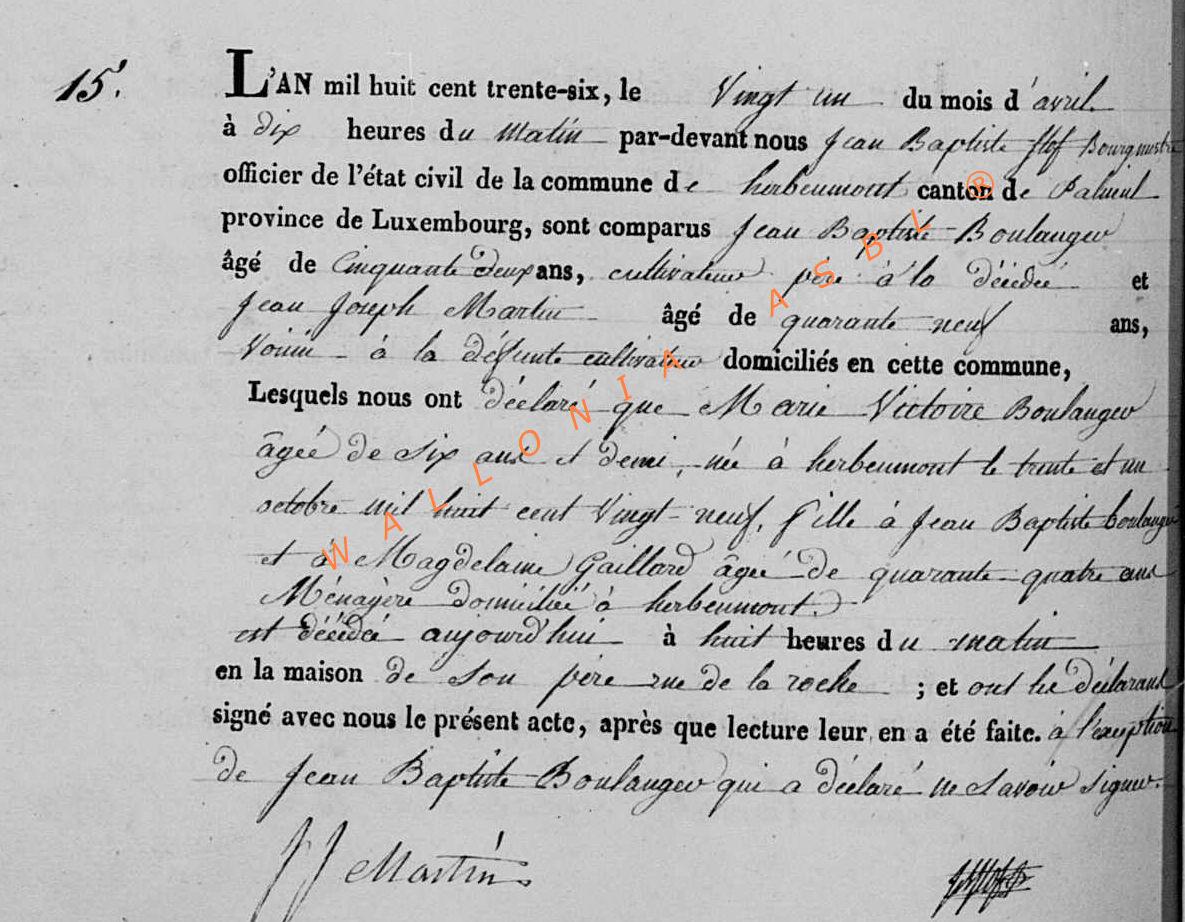 15.
L'AN mil huit cent trente-six, le Vingt un du mois d'avril
à dix heures du matin par-devant nous Jean Baptiste Bourgmestre
officier de l'état civil de la commune de herbeumont canton de Paliseul
province de Luxembourg, sont comparus Jean Baptiste Boulanger
âgé de Cinquante deux ans, cultivateur père à la décédée et
Jean Joseph Martin âgé de quarante neuf ans,
Voisin à la défunte cultivateur domiciliés en cette commune,
Lesquels nous ont déclaré que Marie Victoire Boulanger
âgée de six ans et demi, née à herbeumont le trente et un
octobre mil huit cent Vingt-neuf, fille à Jean Baptiste boulanger
et à Magdelaine Gaillard âgée de quarante-quatre ans
Ménagère domiciliée à herbeumont.
est décédée aujourd'hui à huit heures du matin
en la maison de son père rue de la roche ; et ont les déclarans
signé avec nous le présent acte, après que lecture leur en a été faite. à l'exeption
de Jean Baptiste Boulanger qui a déclaré ne savoir signer.
JJ Martin
WALLONIA ASBL ®